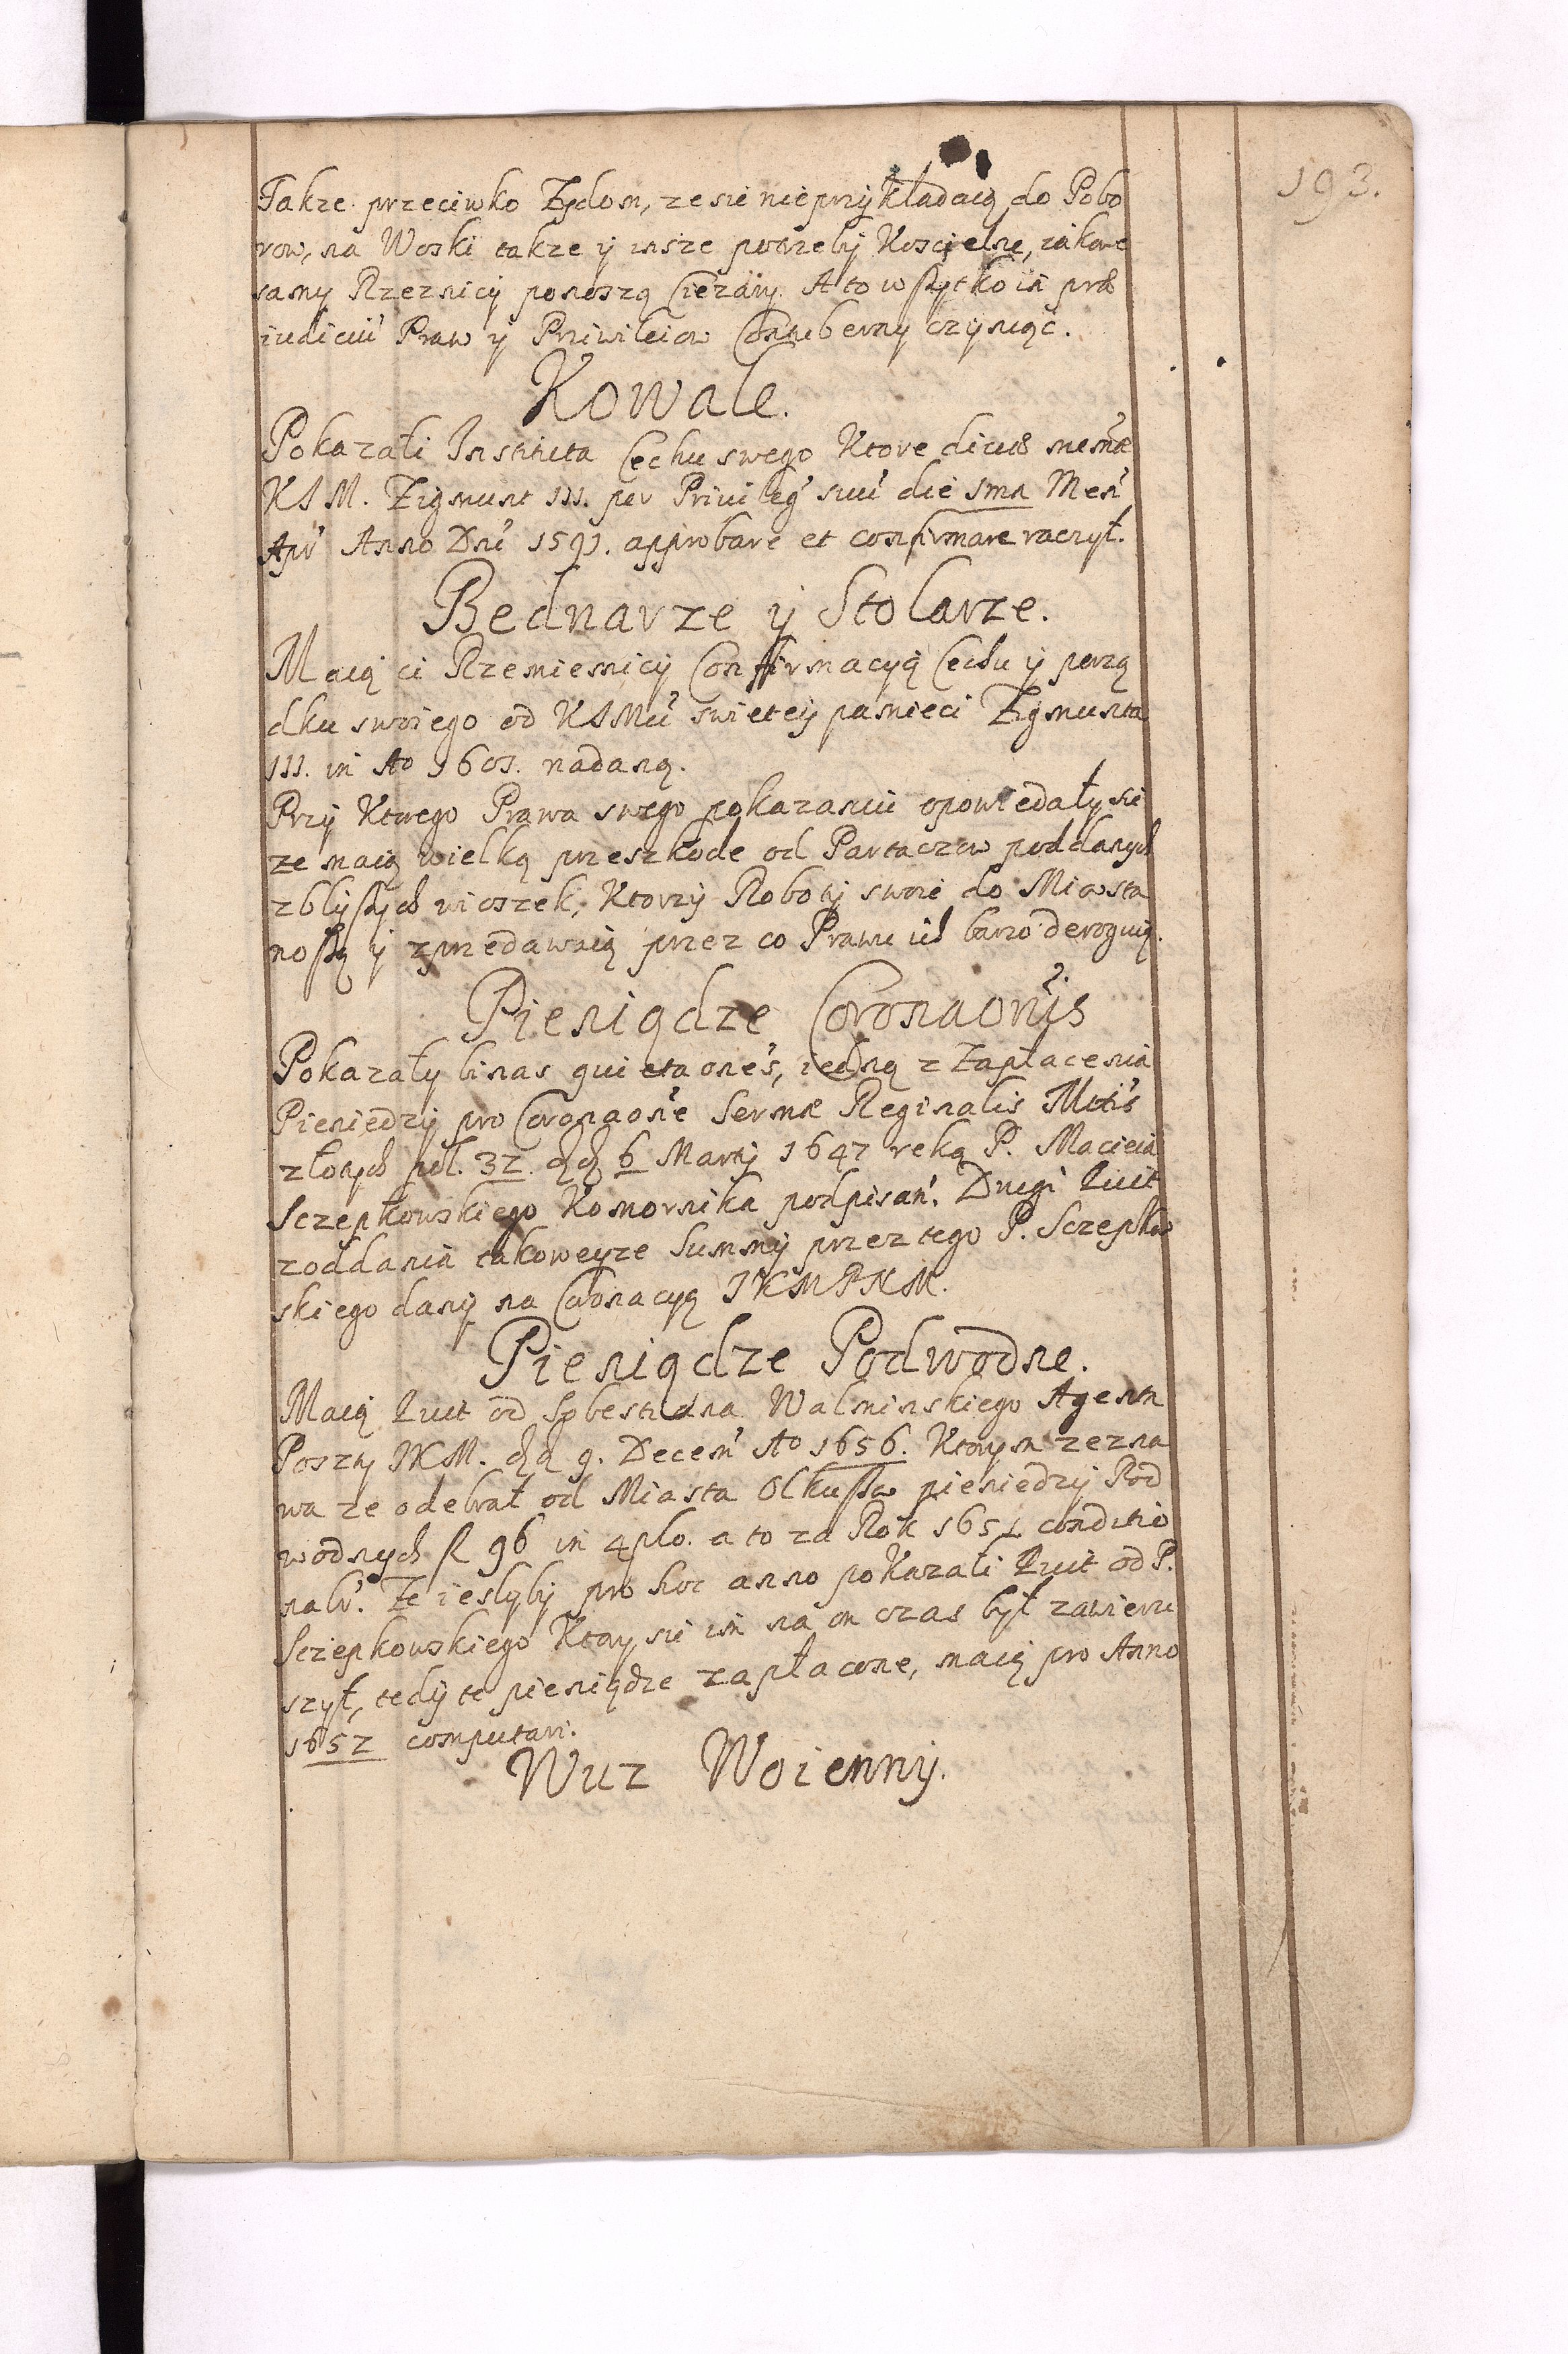 193.
Takze przeciwko Zydom, ze sie nieprzykładaią do Pobo
row, na Woski takze y insze potrzeby Koscielne, iakowe
samy Rzeznicy ponoszą Ciezary. A to wszytko in præ
iudiciũ Praw y Priwileiow Contuberny czyniąc.
Kowale.
Pokazali Instituta Cechu swego Ktore divæ memæ
KJM. Zigmunt III. per Privileg' suũ die 5ma Men'
Apr' Anno Dni' 1591. approbare et confirmare raczył.
Bednarze y Stolarze.
Maią ci Rzemiesnicy Confirmacyą Cechu y porzą
dku swoiego od KJMci swietey pamieci Zigmunta
III. in Ao 1601. nadaną.
Przy Ktorego Prawa swego pokazaniu opowiedały sie
ze maią wielką przeszkode od Partaczow poddanych
z bliszych wioszek, Ktorzy Roboty swoie do Miasta
noszą y zprzedawaią przez co Prawu ich barzo deroguią.
Pieniądze Coronaonis
Pokazały binas quietaones, iedną z Zapłacenia
Pieniedzy pro Coronaone Sermæ Reginalis Mttis
złotych pol. 32. dd 6 Marty 1647 reką P. Macieia
Sczepkowskiego Komornika podpisan'. Drugi Quit
z oddania takoweyze Summy przez tego P. Sczepkow
skiego dany na Coronacyą JKMPNM.
Pieniądze Podwodne.
Maią Quit od Sobestiana Walminskiego Agentn
Poszty JKM. dd 9. Decem' Ao 1656. Ktorym zezna
wa ze odebrał od Miasta Olkusza pieniedzy Pod
wodnych fl 96 in 4plo. a to za Rok 1651 conditio
nalr'. Ze iesliby pro hoc anno pokazali Quit od P.
Sczepkowskiego Ktory sie im na on czas był zawieru
szył, tedy te pieniądze zapłacone, maią pro Anno
1652 computari.
Wuz Woienny.